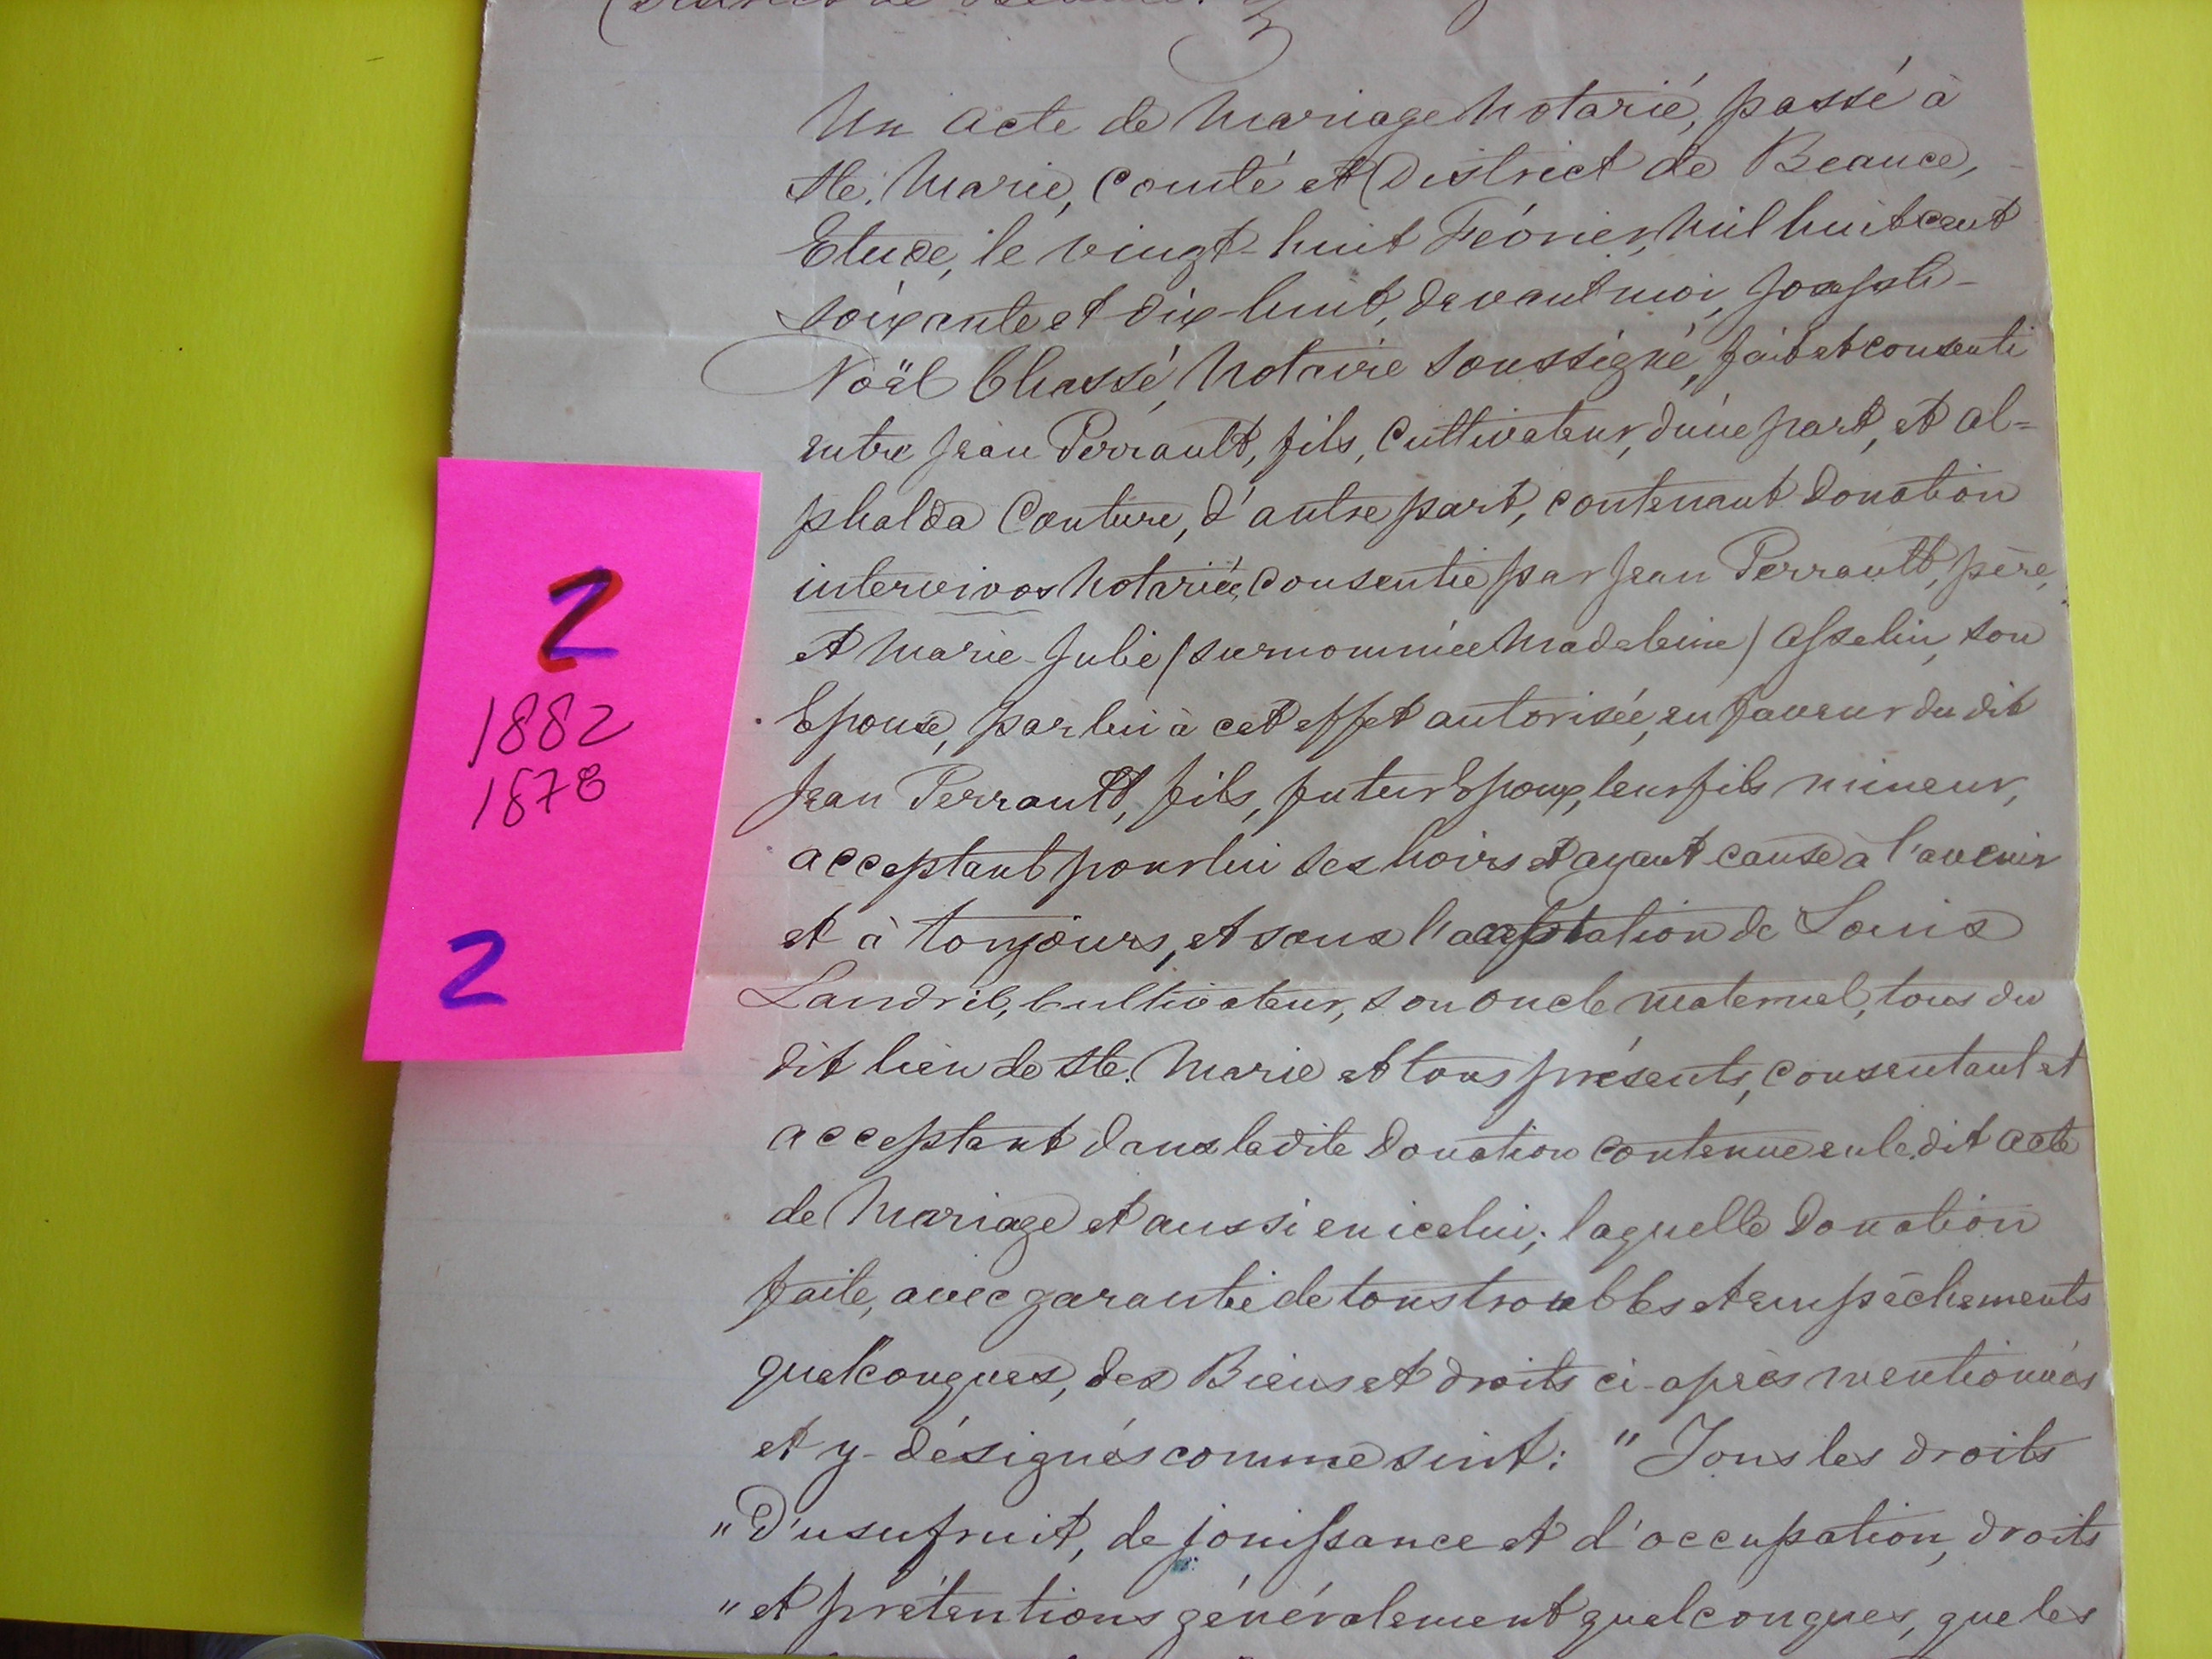 District de Beauce.
Un acte de Mariage Notarié, passé à
Ste. Marie, Comté et District de Beauce,
Etude, le vingt-huit Février, Mil huit cent
soixante et dix-huit, devant moi, Joseph-
Noël Chassé, Notaire soussigné, fait et consenti
entre Jean Perrault, fils, Cultivateur, d'une part, et al=
phalda Couture, d'autre part, contenant Donation
intervivos Notariée, consentie par Jean Perrault, père,
et Marie-Julie (surnommée Madeleine) Asselin, son
Epouse, par lui à cet effet autorisée, en faveur du dit
Jean Perrault, fils, futur Epoux, leur fils mineur,
acceptant pour lui ses hoirs et ayant cause à l'avenir
et à toujours, et sous l'acceptation de Louis
Landril, Cultivateur, son oncle maternel, tous du
dit lieu de Ste. Marie et tous présents, consentant et
acceptant dans la dite Donation contenue en le dit acte
de Mariage et aussi en icelui; laquelle Donation
faite, avec garantie de tous troubles et empêchements
quelconques, des Biens et droits ci-après mentionnés
et y-désignés comme suit: "Tous les droits
"d'usufruit, de jouissance et d'occupation, droits
"et prétentions généralement quelconques, que les
2
1882
1878
2